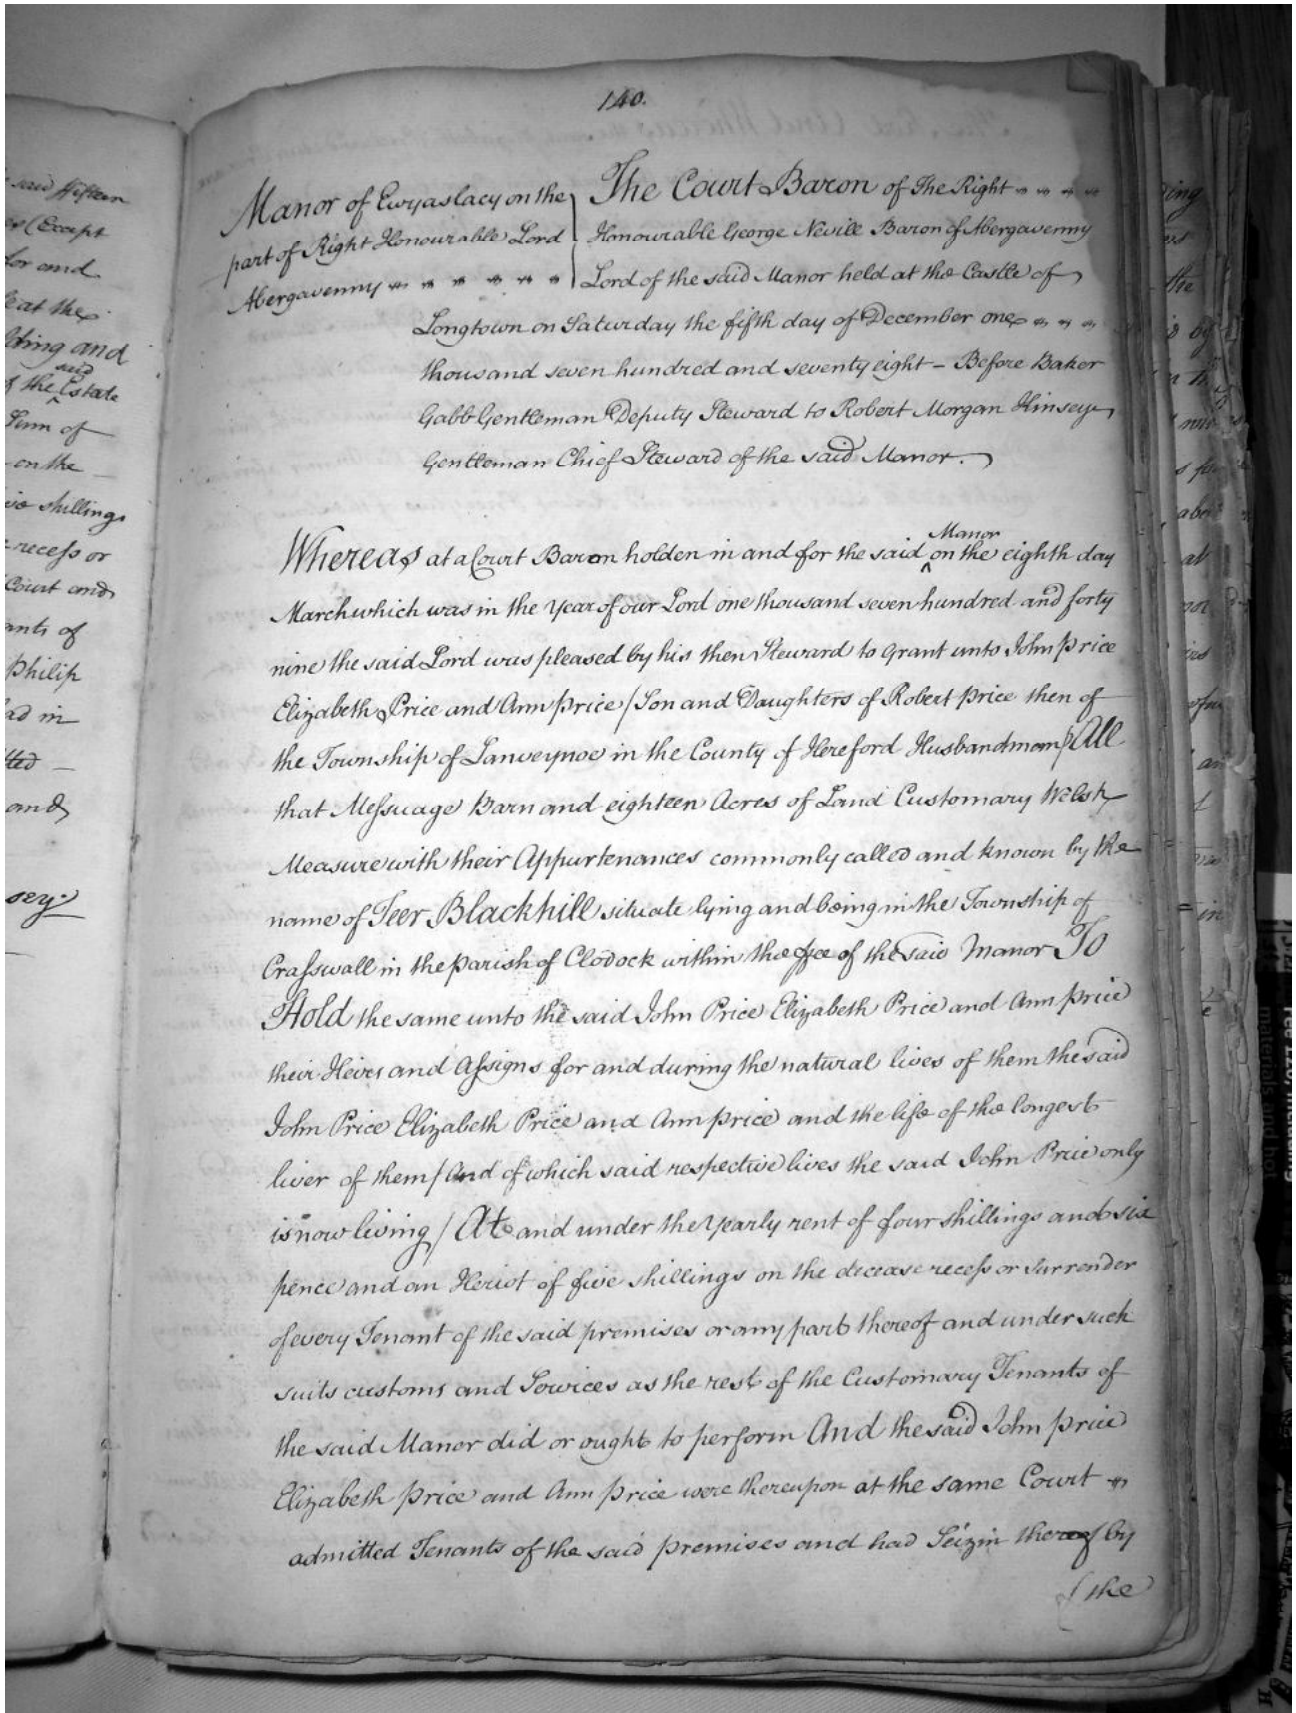 said fifteen
(Except
for and
at the
and
said
the Estate
Sum of
on the
shillings
recess or
Court and
of
Philip
in
and
140.
Manor of Ewyaslacy on the
part of Right Honourable Lord
Abergavenny
The Court Baron of The Right
Honourable George Nevill Baron of Abergavenny
Lord of the said Manor held at the Castle of
Longtown on Saturday the fifth day of December one
thousand seven hundred and seventy eight - Before Baker
Gabb Gentleman Deputy Steward to Robert Morgan Kinsey
Gentleman Chief Steward of the said Manor.
Manor
Whereas at a Court Baron holden in and for the said ^ on the eighth day
March which was in the Year of our Lord one thousand seven hundred and forty
nine the said Lord was pleased by his then Steward to grant unto John price
Elizabeth Price and Ann price / Son and Daughters of Robert price then of
the Township of Lanveynoe in the County of Hereford Husbandman / All
that Messuage Barn and eighteen Acres of Land Customary Welsh
Measure with their Appurtenances commonly called and known by the
name of Teer Blackhill situate lying and being in the Township of
Crasswall in the parish of Clodock within the fee of the said Manor To
Hold the same unto the said John Price Elizabeth Price and Ann price
their Heirs and Assigns for and during the natural lives of them the said
John Price Elizabeth Price and Ann price and the life of the longest
liver of them / And of which said respective lives the said John Price only
is now living / At and under the Yearly rent of four shillings and six
pence and an Heriot of five shillings on the decease recess or Surrender
of every Tenant of the said premises or any part thereof and under such
suits customs and Services as the rest of the Customary Tenants of
the said Manor did or ought to perform And the said John price
Elizabeth price and Ann price were thereupon at the same Court
admitted Tenants of the said premises and had Seizin thereof by
the